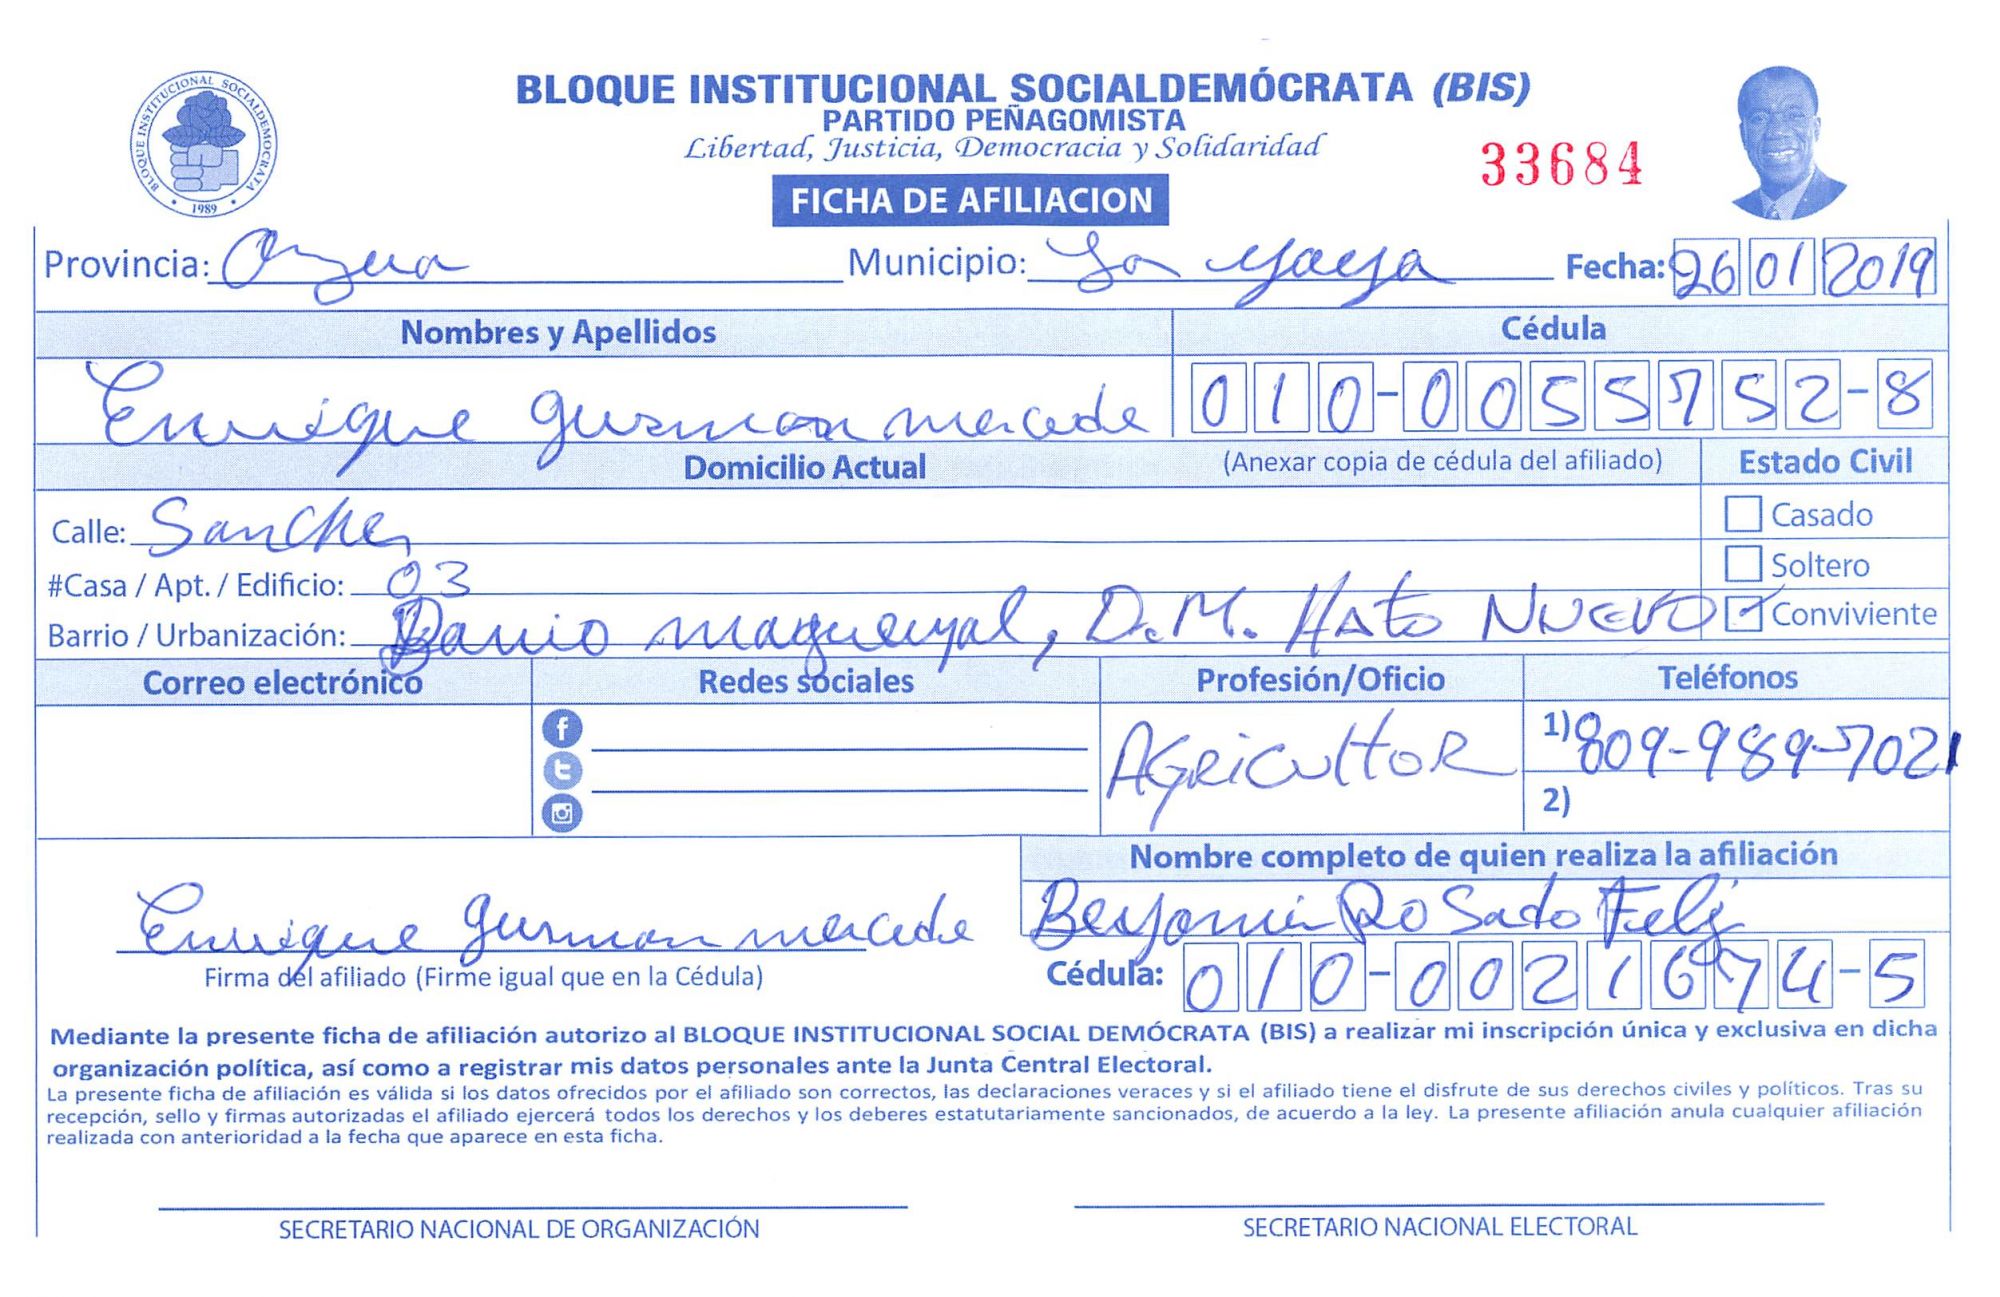 BLOQUE INSTITUCIONAL SOCIALDEMOCRATA
1989
BLOQUE INSTITUCIONAL SOCIALDEMÓCRATA (BIS)
PARTIDO PEÑAGOMISTA
Libertad, Justicia, Democracia y Solidaridad
33684
FICHA DE AFILIACION
Provincia: Azua Municipio: La yaya Fecha: 26 01 2019
Nombres y Apellidos Cédula
Enrique guzman mercede 010-0055752-8
Domicilio Actual (Anexar copia de cédula del afiliado) Estado Civil
Calle: Sanchez Casado
#Casa / Apt. / Edificio: 03 Soltero
Barrio / Urbanización: Barrio magueyal, D.M. HAto NUEVO Conviviente
Correo electrónico Redes sociales Profesión/Oficio Teléfonos
AGRICULtOR 1) 809-989-7021
2)
Nombre completo de quien realiza la afiliación
Enrique guzman mercede Benjamin RoSado Feliz
Firma del afiliado (Firme igual que en la Cédula) Cédula: 010-0021674-5
Mediante la presente ficha de afiliación autorizo al BLOQUE INSTITUCIONAL SOCIAL DEMÓCRATA (BIS) a realizar mi inscripción única y exclusiva en dicha
organización política, así como a registrar mis datos personales ante la Junta Central Electoral.
La presente ficha de afiliación es válida si los datos ofrecidos por el afiliado son correctos, las declaraciones veraces y si el afiliado tiene el disfrute de sus derechos civiles y políticos. Tras su
recepción, sello y firmas autorizadas el afiliado ejercerá todos los derechos y los deberes estatutariamente sancionados, de acuerdo a la ley. La presente afiliación anula cualquier afiliación
realizada con anterioridad a la fecha que aparece en esta ficha.
SECRETARIO NACIONAL DE ORGANIZACIÓN SECRETARIO NACIONAL ELECTORAL